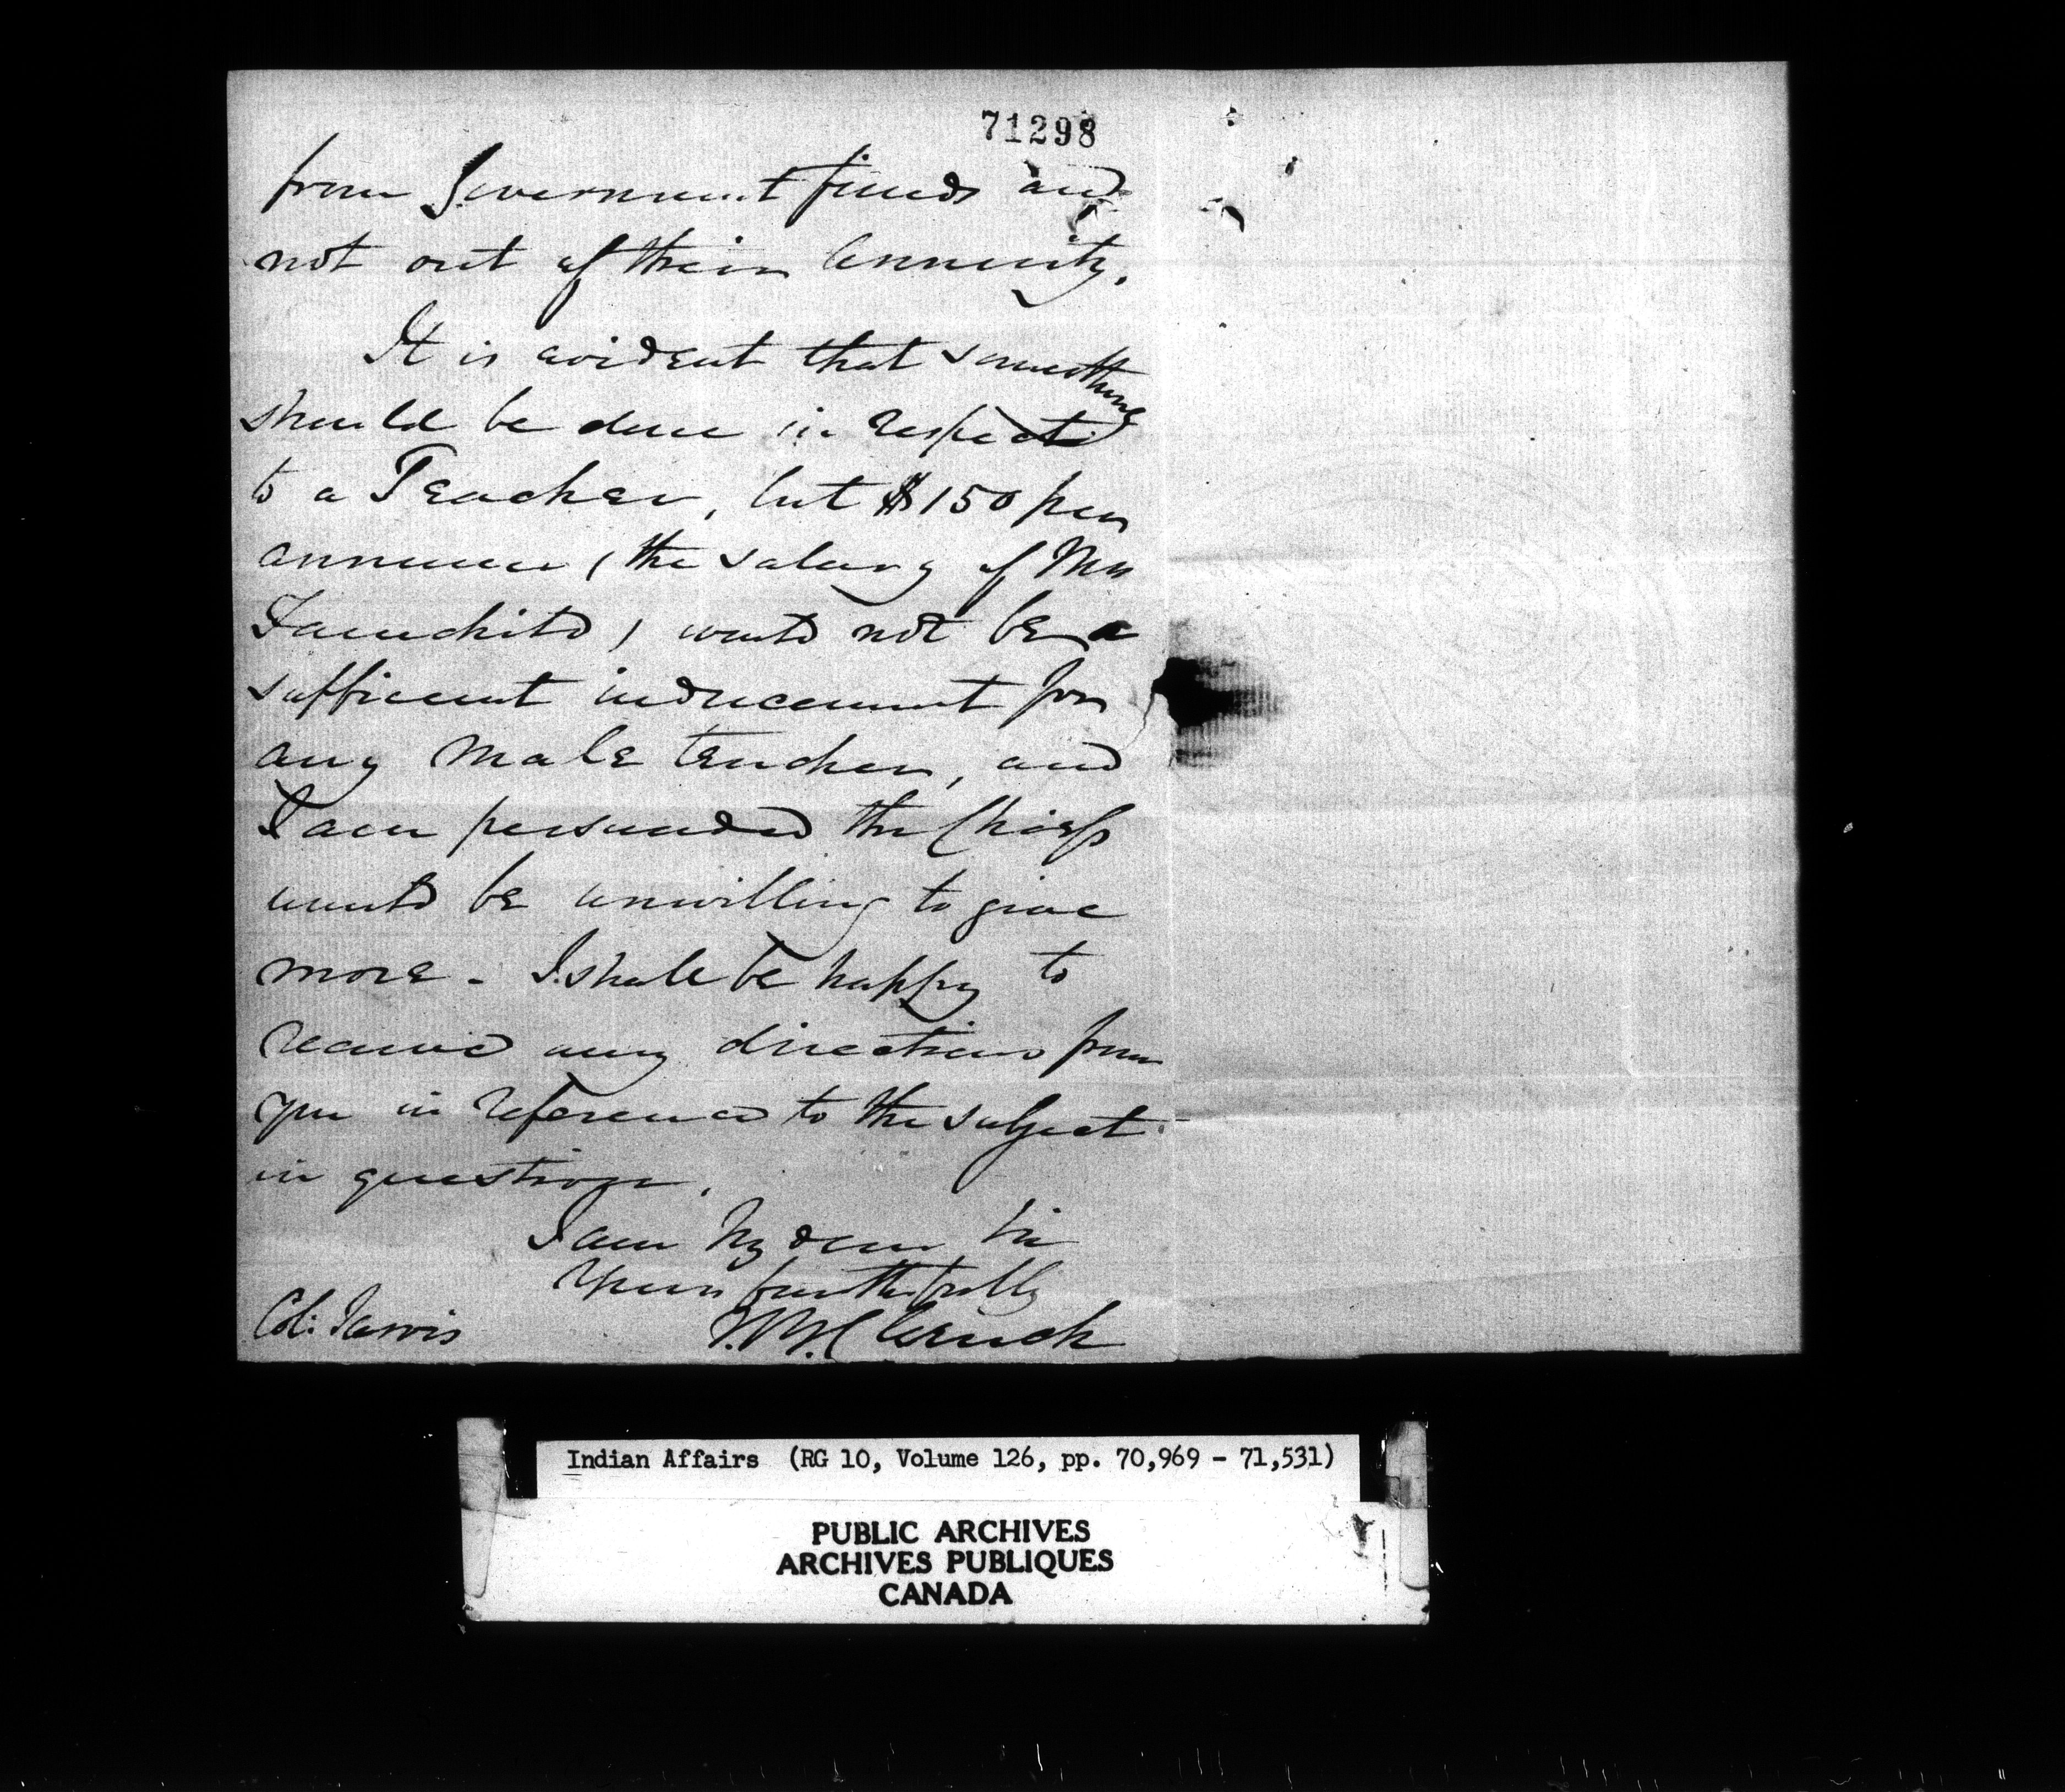 71298
from Government funds and
not out of their Annuity.
It is evident that something
should be done in respect
to a Teacher, but $150 per
annum (the salary of Mr
) would not be a
sufficient inducement for
any male teacher, and
I am persuaded the Chiefs
would be unwilling to give
more - I shall be happy to
receive any directions from
you in reference to the subject
in question.
I am My dear Sir
Yours faithfully
Col: Jarvis
Indian Affairs (RG 10, Volume 126, pp. 70,969 - 71,531)
PUBLIC ARCHIVES
ARCHIVES PUBLIQUES
CANADA